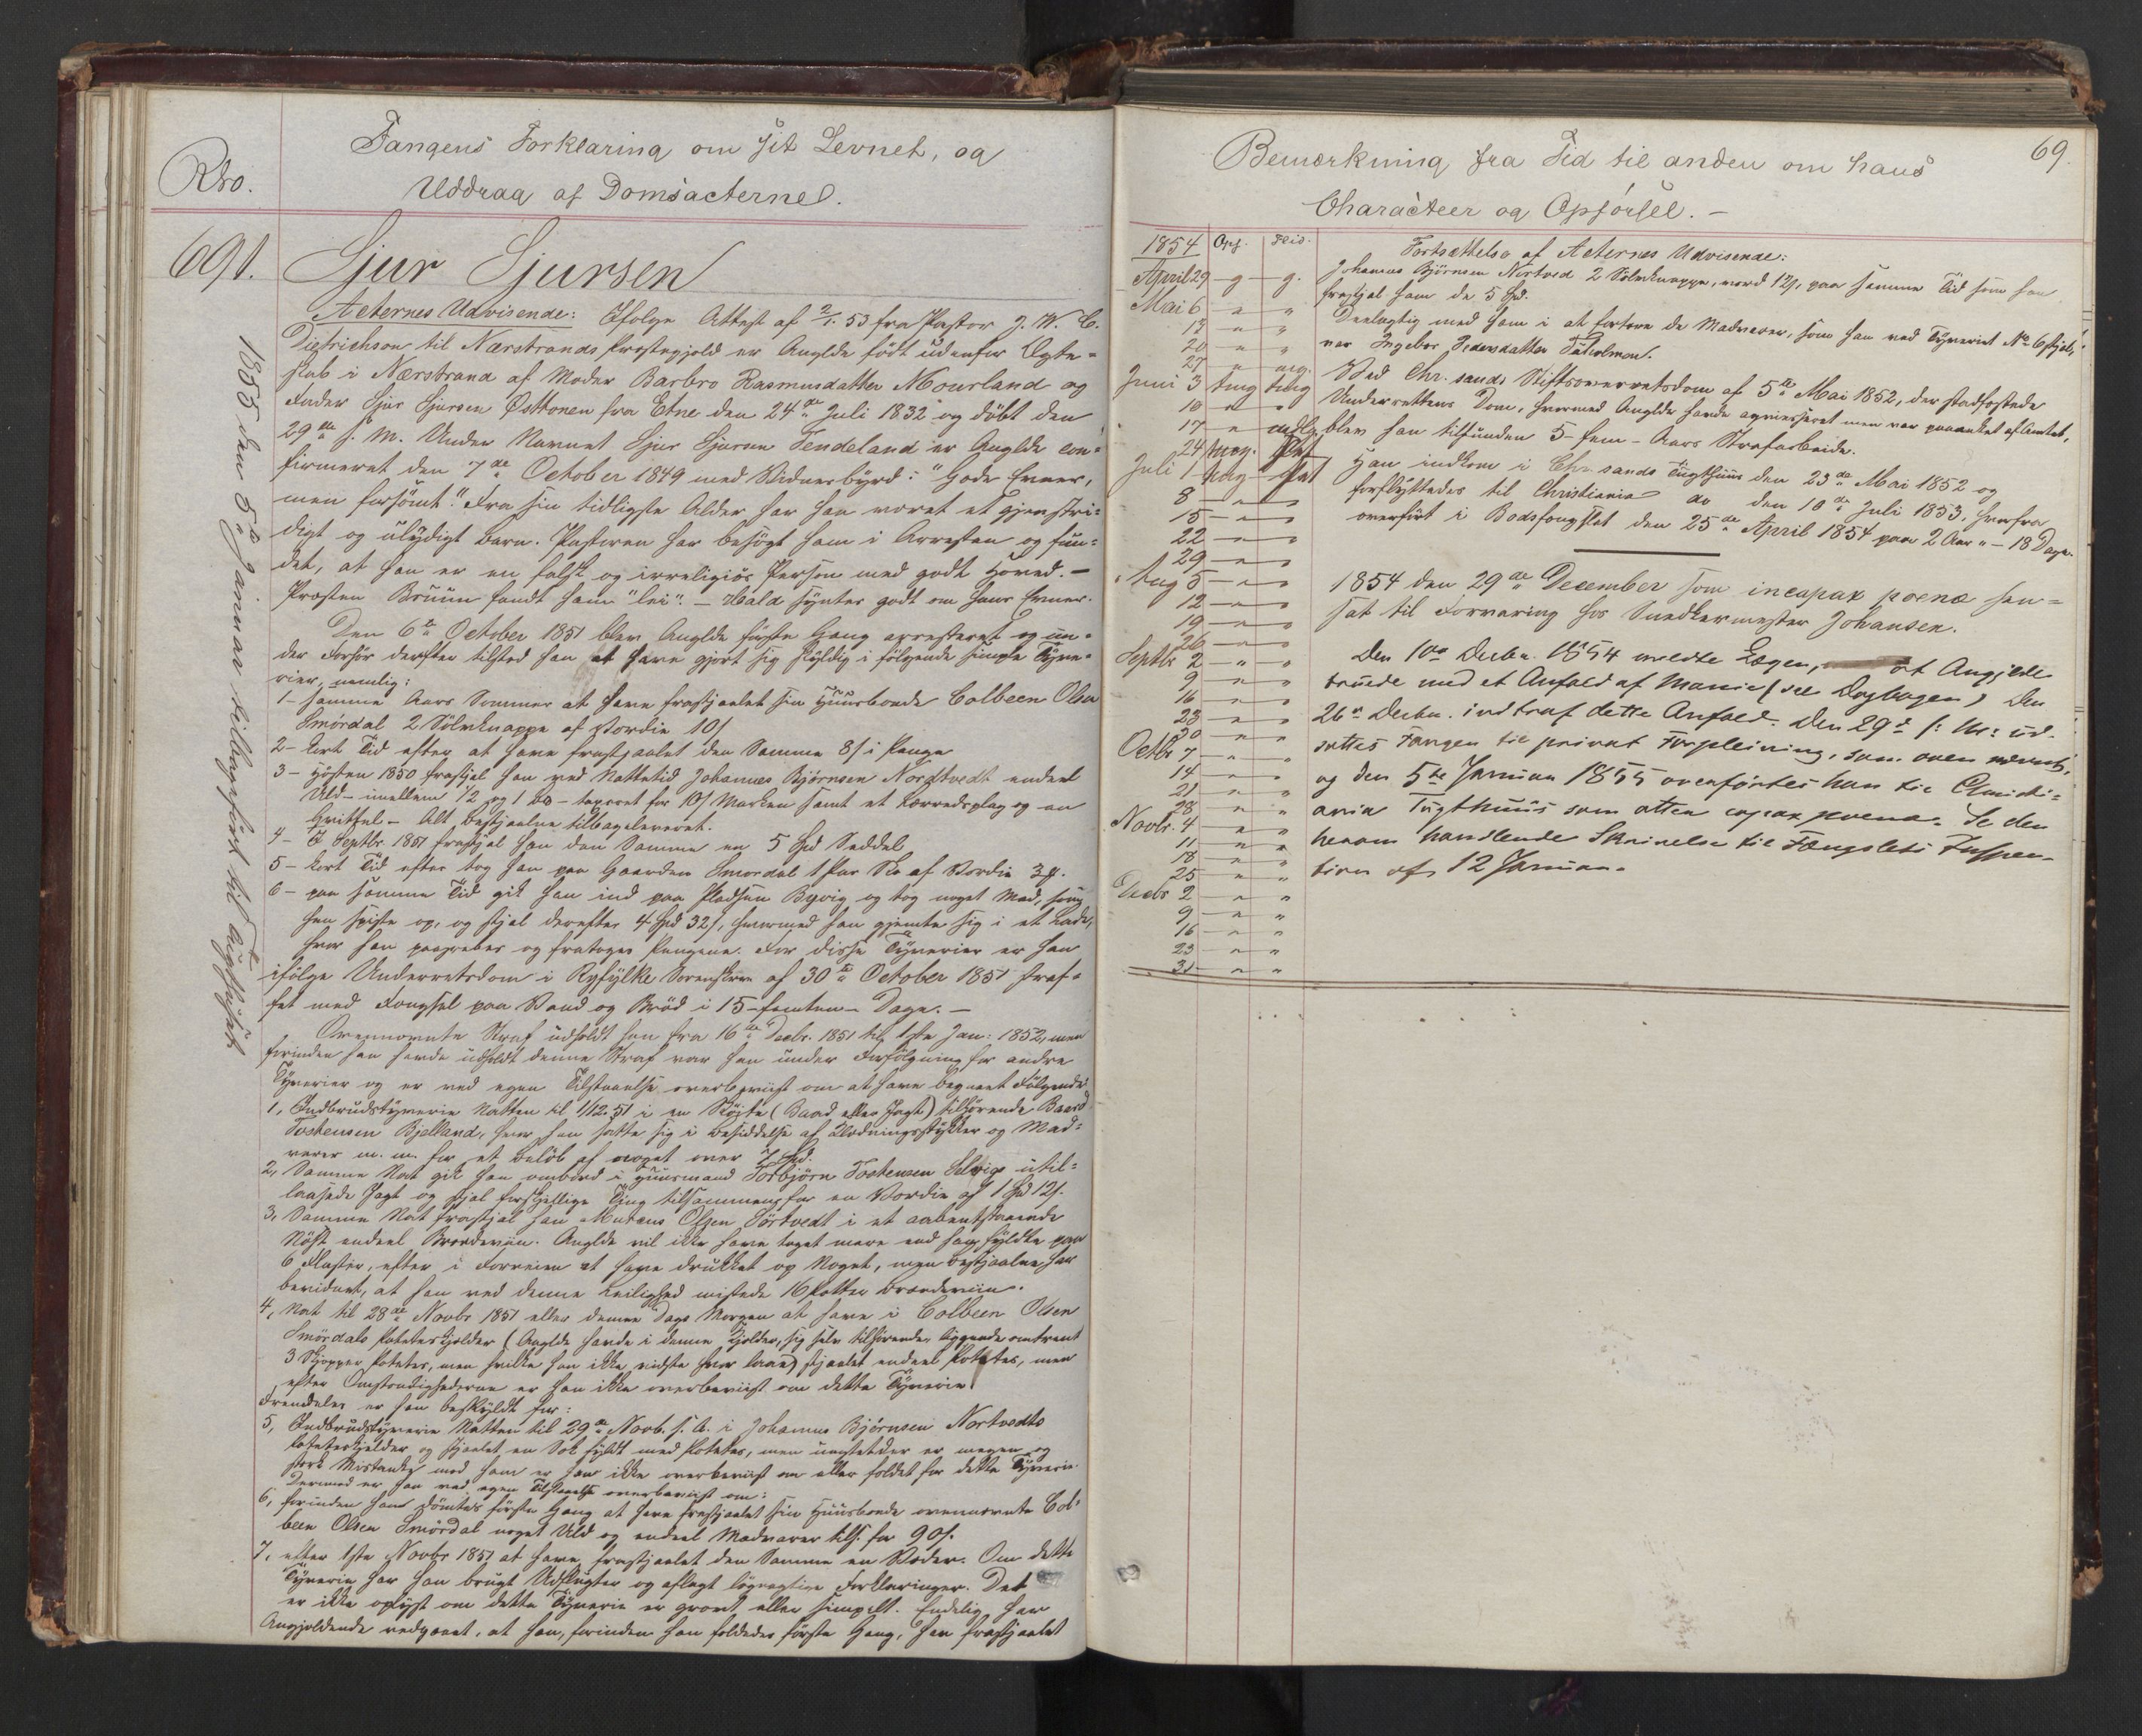 Fangens Forklaring om sit Levnet, og
Uddrag af Domsacterne.
Rbo.
691.
Sjur Sjursen
Acternes Udvisende: Ifølge Attest af 2/1. 53 fra Pastor J. W. C.
Dietrichson til Nærstrands Præstegjeld er Anglde født udenfor Ægte-
skab i Nærstrand af Moder Barbro Rasmusdatter Mourland og
Fader Sjur Sjursen Østtonen fra Etne den 24de Juli 1832 og døbt den
29de s. M. Under Navnet Sjur Sjursen Tendeland er Anglde con-
firmeret den 7de October 1849 med Vidnesbyrd: "Gode Evner,
men forsømt." Fra sin tidligste Alder har han været et gjenstri-
digt og ulydigt Barn. Pastoren har besøgt ham i Arresten og fun-
det, at han er en falsk og irreligiøs Person med godt Hoved. -
Præsten Bruun fandt ham "lei". - Hald synter godt om hans Evner.
Den 6te October 1851 blev Anglde første Gang arresteret og un-
der Forhør derefter tilstod han at have gjort sig skyldig i følgende simple Tyve-
rier, nemlig:
1 - samme Aars Sommer at have frastjaalet sin Huusbonde Colbeen Olsen
Smördal 2 Sølvknappe af Værdie 10 s
2 - kort Tid efter at have frastjaalet den Samme 8 s i Penge
3 - Høsten 1850 frastjal han ved Nattetid Johannes Bjørnsen Nordtvedt endeel
Uld - imellem 1/2 og 1 - taxeret for 10 s Marken samt et Lærredsplag og en
- Alt Bestjaalne tilbageleveret.
4 - I Septbr. 1851 frastjal han den Samme en 5 Spd Seddel
5 - kort Tid efter tog han paa Gaarden Smordal 1 Par Sko af Værdie
6 - paa samme Tid gik han ind paa Pladsen Bgvig og tog noget Mad, som
han spiste op, og stjal derefter 4 Spd 32 s, hvormed han gjemte sig i et Lade,
hvor han paagrebes og fratoges Pengene. For disse Tyverier er han
ifølge Underretsdom i Ryfylke Sorenskrive af 30te October 1851 straf-
fet med Fængsel paa Vand og Brød i 15 - femten - Dage. -
Ovennævnte Straf udholdt han fra 16de Decbr. 1851 til 1ste Jan: 1852, men
forinden han havde udholdt denne Straf var han under Forfølgning for andre
Tyverier og er ved egen Tilstaaelse overbeviist om at have begaaet Følgende
1, Indbrudstyverie Natten til 1/12 51 i en Skøite (Baad eller Jagt) tilhørende Baard
Tostensen Bjelland, hvor han satte sig i Besiddelse af Klædningsstykker og Mad-
varer m. m. for et Beløb af noget over 7 Spd.
2, Samme Nat gik han ombord i Huusmand Torbjørn Tostensen Selvigs util-
laasede Jagt og stjal forskjellige Ting tilsammen for en Værdie af 1 Spd 12 s.
3, Samme Nat frastjal han Mataus Olsen Sørtvedt i et aabentstaaende
Nøst endeel Brændeviin. Anglde vil ikke have taget mere end han fyldte paa
6 Flasker, efter i Forveien at have drukket op Noget, men Bestjaalne har
bevidnet, at han ved denne Leilighed mistede 16 Potter Brændeviin.
4, Nat til 28de Novbr 1851 eller denne Dags Morgen at have i Colbeen Olsen
Smördals Poteteskjelder (Anglde havde i denne Kjelder, sig selv tilhørende, liggende omtrent
3 Skjepper Poteter, men hvilke han ikke vidste hvor laae) stjaalet endeel Poteter, men
efter Omstændighederne er han ikke overbeviist om dette Tyverie.
Fremdeles er han beskyldt for:
5, Indbrudstyverie Natten til 29de Novb. s. A. i Johannes Bjørnsen Nortvedts
Poteteskjelder og stjaalet en Sæk fyldt med Poteter, men uagtet der er megen og
stærk Mistanke mod ham er han ikke overbeviist om eller fældet for dette Tyverie.
Derimod er han ved egen Tilstaaelse overbeviist om:
6, forinden han dømtes første Gang at have frastjaalet sin Huusbonde ovennævnte Col-
been Olsen Smördal noget Uld og endeel Madvarer tils. for 90 s.
7, efter 1ste Novbr 1851 at have frastjaalet den Samme en Væder. Om dette
Tyverie har han brugt Udflugter og aflagt løgnagtige Forklaringer. Det
er ikke oplyst om dette Tyverie er grovt eller simpelt. Endelig har
Angjeldende vedgaaet, at han, forinden han fældedes første Gang, har frastjaalet
1855 den 5te Januar tilbageført til Tugthuset
69.
Bemærkning fra Tid til anden om hans
Characteer og Opførsel. -
1854 Opf. Flid.
April 29 - g - g.
Mai 6 - " "
13 " "
20 - " "
27 " mg.
Juni 3 tmg tmg
10 - " "
17 - "
24 meg.
Juli 1 mg -
8 - "
15 - "
22 - "
29 - "
Aug 5 - "
12 - "
19 - "
26 - "
Septbr 2 - " "
9 " "
16 " "
23 " "
30 " "
Octbr 7 " "
14 " "
21 " "
28 " "
Novbr. 4 " "
11 " "
18 " "
25 " "
Decbr 2 " "
9 " "
16 " "
23 " "
31 " "
Fortsættelse af Acternes Udvisende:
Johannes Bjørnsen Nortved 2 Sølvknappe, værd 12 s, paa samme Tid som han
frastjal ham de 5 Spd.
Deelagtig med ham i at fortære de Madvarer, som han ved Tyveriet No 6 stjal,
var Ingebor Pedersdatter
Ved Chr.sands Stiftsoverretsdom af 5te Mai 1852, der stadfæstede
Underrettens Dom, hvormed Anglde havde acquiesceret men var paaanket af Amtet,
blev han tilfunden 5 - fem - Aars Strafarbeide.
Han indkom i Chr.sands Tugthuus den 23de Mai 1852 og
forflyttedes til Christiania do den 10de Juli 1853, hvorfra
overført i Bodsfængslet den 25de April 1854 paa 2 Aar " - 18 Dage.
1854 den 29de December som incapax poenæ hen-
sat til Forvaring hos Snedkermester Johansen.
Den 10de Decbr. 1854 meldte Lægen, at Angjeldte
truede med et Anfald af Manie (see Dagbogen) Den
26de Decbr. indtraf dette Anfald. Den 29de s: M: ud-
sattes Fangen til privat Forpleining, som oven nævnt,
og den 5te Januar 1855 overførtes han til Christi-
ania Tugthuus som atten capax poenæ. Se den
herom handlende Skrivelse til Fængslets Inspec-
tion af 12 Januar.